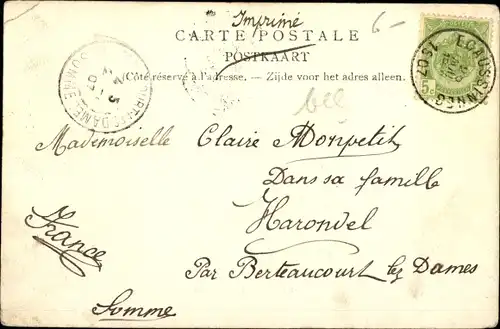 Imprimé
6-
CARTE POSTALE
POSTKAART
(Côté réservé à l'adresse. — Zijde voor het adres alleen.)
ECAUSSINNES
1907
5 C
SOMME
5
07
bee
Mademoiselle Claire Monpetit
Dans sa famille
Harondel
France
Par Berteaucourt lez Dames
Somme